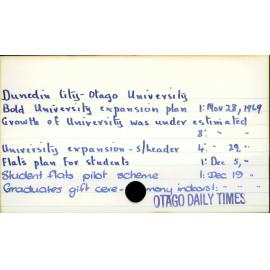 Dunedin City - Otago University
Bold University expansion plan 1: Nov 28, 1969
Growth of University was under estimated
8: " "
University expansion - s/header 4: " 29, "
Flats plan for students 1: Dec 5, "
Student flats pilot scheme 1: Dec 19 "
Graduates gift cere- mony indoors 1: " "
OTAGO DAILY TIMES